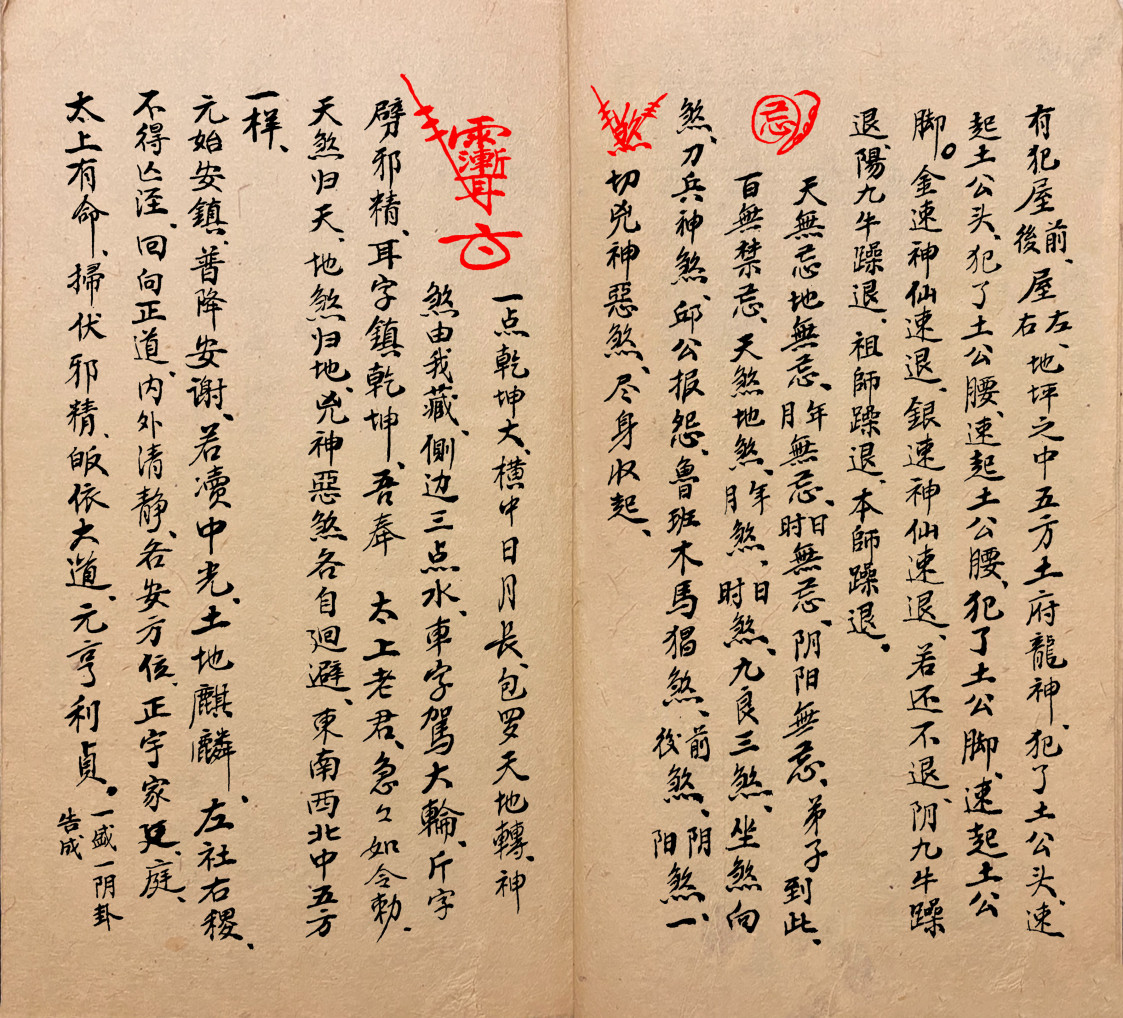 有犯屋前後、屋左右、地坪之中五方土府龍神、犯了土公头、速
起土公头、犯了土公腰、速起土公腰、犯了土公脚、速起土公
脚。金速神仙速退、銀速神仙速退、若还不退、阴九牛躁
退、陽九牛躁退、祖師躁退、本師躁退。
忌
天無忌地無忌、年月無忌、日时無忌、阴阳無忌、弟子到此、
百無禁忌、天煞地煞、年月煞、日时煞、九良三煞、坐煞向
煞、刀兵神煞、邱公报怨、魯班木馬猖煞、前後煞、阴阳煞、一
煞
切兇神惡煞、尽身收起、
一点乾坤大、横中日月长、包罗天地轉、神
煞由我藏、側边三点水、車字駕大輪、斤字
劈邪精、耳字鎮乾坤、吾奉 太上老君、急々如令勅.
天煞归天、地煞归地、兇神惡煞各自廻避、東南西北中五方
一样、
元始安鎮、普降安谢、若瀆中光、土地麒麟、左社右稷、
不得亾淫、回向正道、内外清静、各安方位、正宇家廷、庭、
太上有命、掃伏邪精、皈依大道、元亨利貞。一盛一阴卦
告成